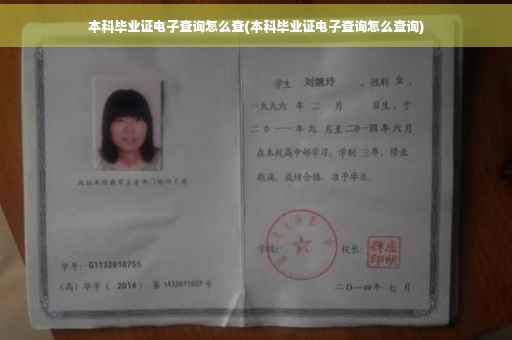 本科毕业证电子查询怎么查(本科毕业证电子查询怎么查询)
学生 刘婉玲 ，性别 女 ，
一九九六 年 二 月 日生，于
二〇一一 年 九 月至 二〇一四 年 六 月
在本校高中部学习，学制 三 年，修业
期满，成绩合格，准予毕业。
学校: 校长:
二〇一四 年 七 月
学号： G1132010755
（高）毕字（ 2014 ）第 1432011027 号